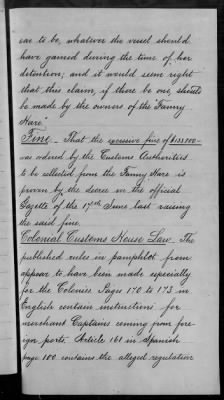 ear to be, whatever the vessel should
have gained during the time of her
detention; and it would seem right
that this claim, if there be one, should
be made by the owners of the "Fanny
Nare."
Fine - That the excessive fine of $133.000-
was ordered by the Customs Authorities
to be collected from the Fanny Nare is
proven by the decree in the official
Gazette of the 17th June last raising
the said fine.
Colonial Customs House Law. The
published rules in pamphlet from
appear to have been made especially
for the Colonies. Pages 170 to 173 in
English contain instructions for
merchant Captains coming from fore-
ign ports. Article 161 in Spanish
page 100 contains the alleged regulation